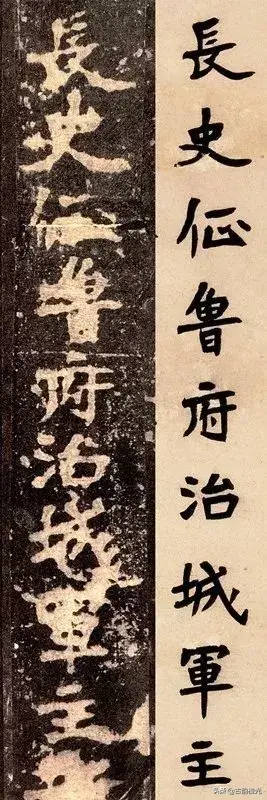 長史征魯府治城軍主
長史征魯府治城軍主
头条 @古韵微光